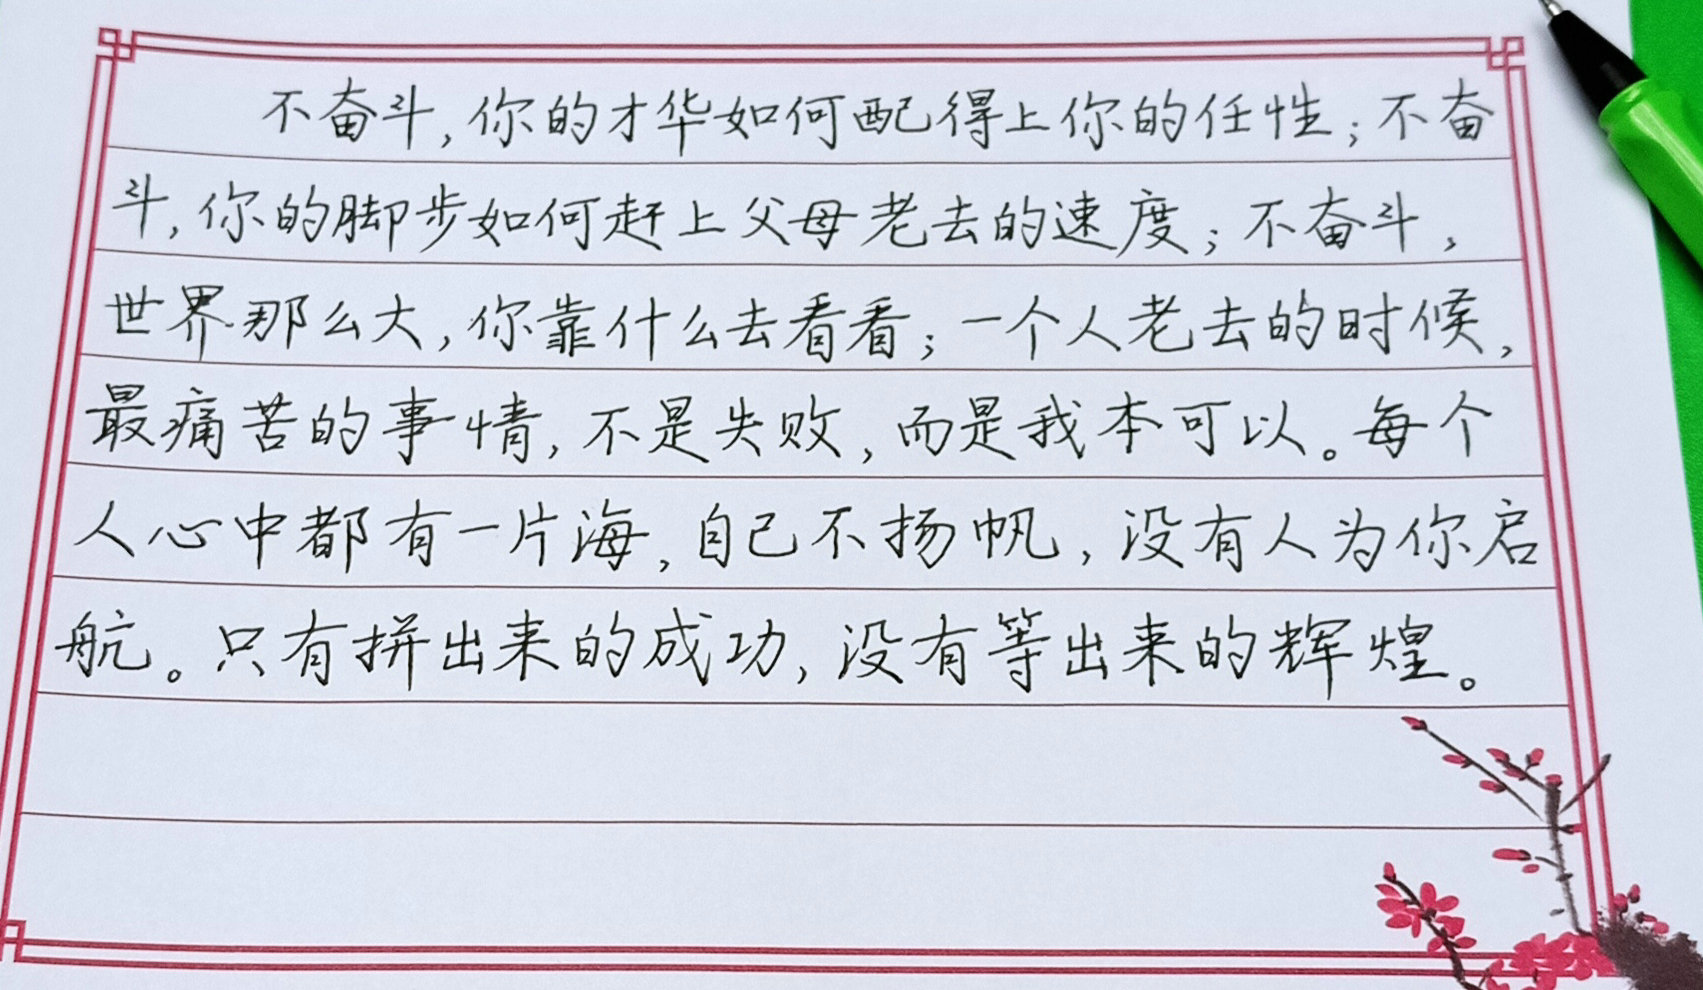 不奋斗,你的才华如何配得上你的任性;不奋
斗,你的脚步如何赶上父母老去的速度;不奋斗,
世界那么大,你靠什么去看看;一个人老去的时候,
最痛苦的事情,不是失败,而是我本可以。每个
人心中都有一片海,自己不扬帆,没有人为你启
航。只有拼出来的成功,没有等出来的辉煌。